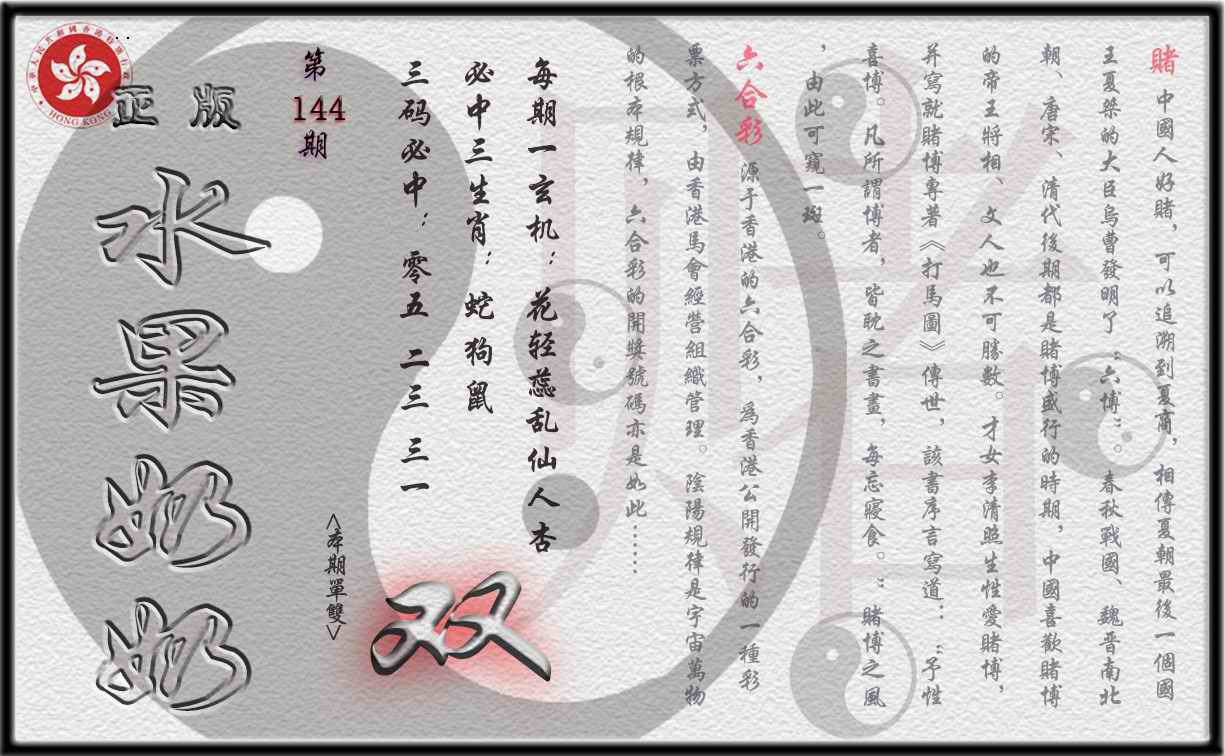 賭 中國人好賭，可以追溯到夏商，相傳夏朝最後一個國
王夏桀的大臣烏曹發明了“六博”。春秋戰國、魏晉南北
朝、唐宋、清代後期都是賭博盛行的時期，中國喜歡賭博
的帝王將相、文人也不可勝數。才女李清照生性愛賭博，
并寫就賭博專著《打馬圖》傳世，該書序言寫道：“予性
喜博。凡所謂博者，皆耽之書畫，每忘寢食。”賭博之風
，由此可窺一斑。
六合彩 源于香港的六合彩，爲香港公開發行的一種彩
票方式，由香港馬會經營組織管理。陰陽規律是宇宙萬物
的根本規律，六合彩的開獎號碼亦是如此……
每期一玄机：花轻蕊乱仙人杏
必中三生肖：蛇狗鼠
三码必中：零五 二三 三一
<本期單雙>
双
第
144
期
正版
水果奶奶
中華人民共和國香港特別行政區
HONG KONG